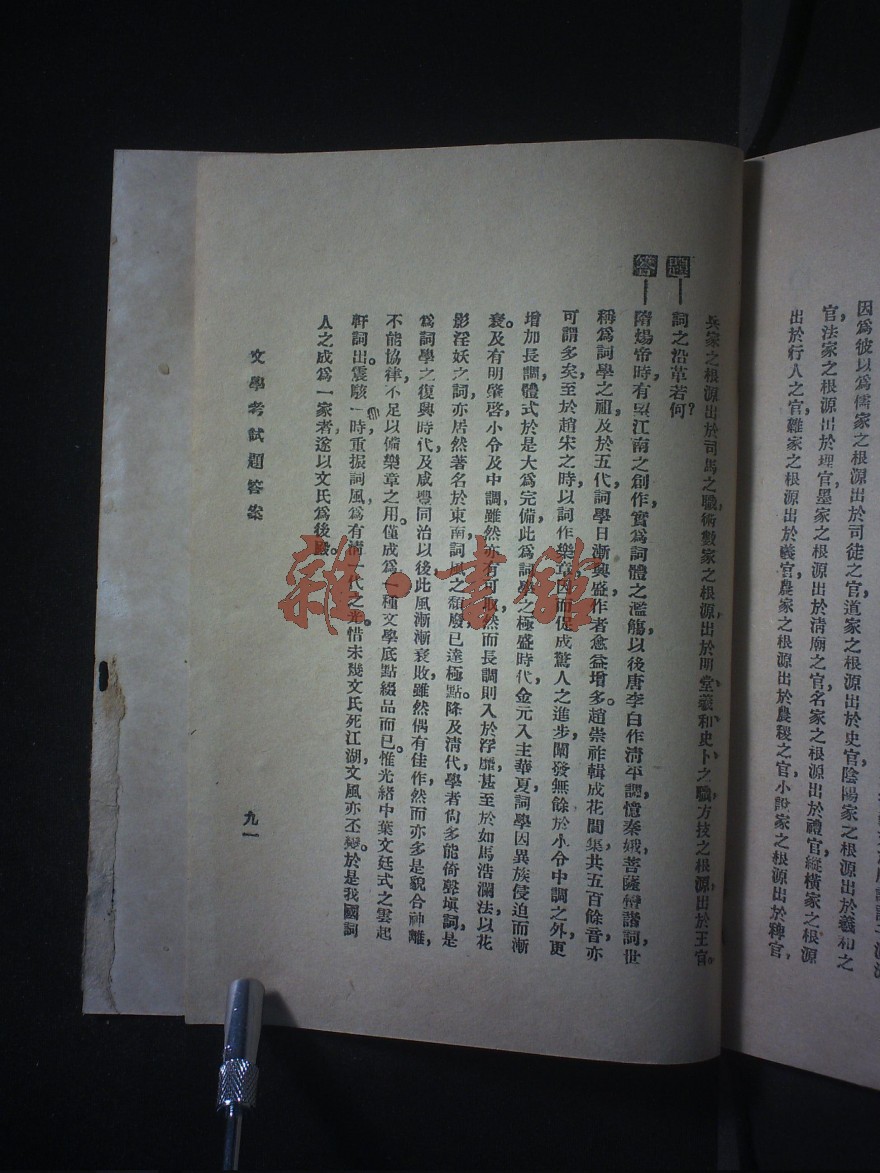 因爲彼以爲儒家之根源出於司徒之官道家之根源出於史官陰陽家之根源出於羲和之
官,法家之根源出於理官墨家之根源出於淸廟之官,名家之根源出於禮官縱橫家之根源
出於行人之官,雜家之根源出於議官農家之根源出於農稷之官,小說家之根源出於稗官,
兵家之根源出於司馬之職,術數家之根源,出於明堂羲和史卜之職,方技之根源,出於王官。
題——詞之沿革若何?
答——隋煬帝時,有望江南之創作,實爲詞體之濫觴,以後唐李白作淸平調,憶秦娥,菩薩蠻諸詞,世
稱爲詞學之祖,及於五代,詞學日漸興盛,作者愈益增多。趙崇祚輯成花間集,共五百餘首,亦
可謂多矣,至於趙宋之時,以詞作樂章,因而促成驚人之進步,闡發無餘,於小令中調之外,更
增加長調,體式於是大爲完備,此爲詞學之極盛時代,金元入主華夏,詞學因異族侵迫而漸
衰。及有明肇啓,小令及中調,雖然亦有可取,然而長調則入於浮靡,甚至於如馬浩瀾法以花
影淫妖之詞,亦居然著名於東南,詞風之頹廢,已達極點。降及淸代,學者尙多能倚聲塡詞,是
爲詞學之復興時代,及咸豐同治以後,此風漸漸衰敗,雖然偶有佳作,然而亦多是貌合神離,
不能協律,不足以備樂章之用。僅成爲一種文學底點綴品而已。惟光緒中葉,文廷式之雲起
軒詞出。震駭一時,重振詞風,爲有淸一代之光。惜未幾文氏死,江湖文風亦丕變。於是我國詞
人之成爲一家者,遂以文氏爲後殿。
文學考試題答案
九一
雜·書館